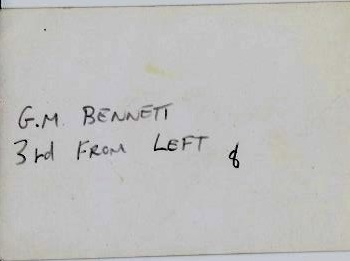 G.M BENNETT
3rd FROM LEFT 8